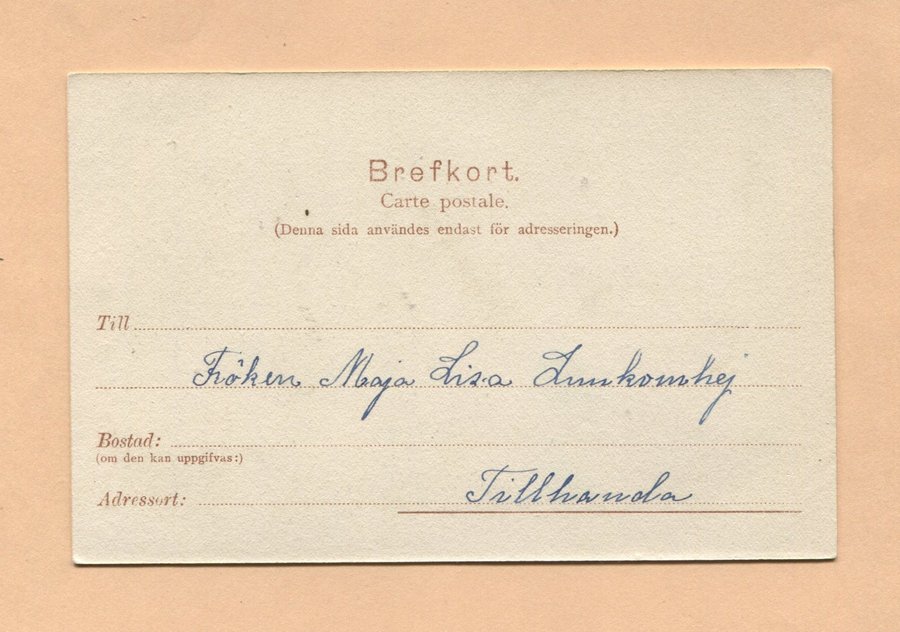 Brefkort.
Carte postale.
(Denna sida användes endast för adresseringen.)
Till
Fröken Maja Lisa
Bostad:
(om den kan uppgifvas:)
Adressort:
Tillhanda